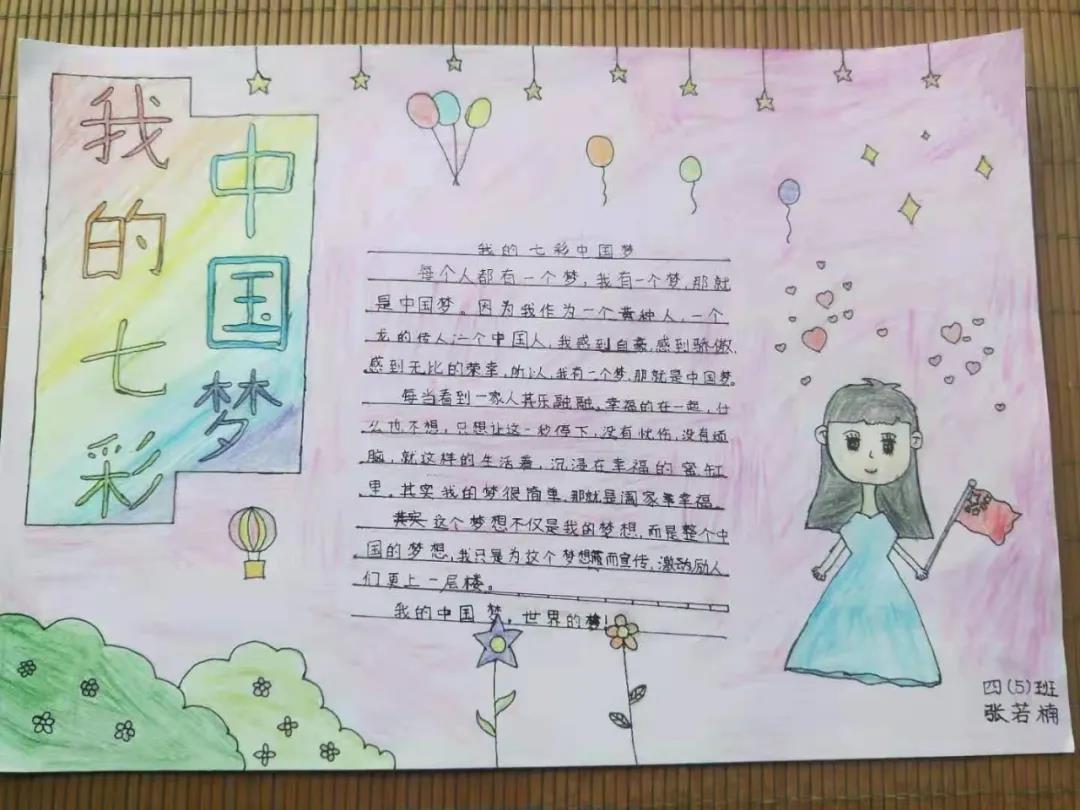 我的七彩
中国梦
我的七彩中国梦
每个人都有一个梦，我有一个梦，那就
是中国梦。因为我作为一个黄种人，一个
龙的传人，一个中国人，我感到自豪，感到骄傲，
感到无比的荣幸，所以，我有一个梦，那就是中国梦。
每当看到一家人其乐融融。幸福的在一起，什
么也不想，只想让这一秒停下，没有忧伤，没有烦
脑，就这样的生活着，沉浸在幸福的蜜缸
里。其实我的梦很简单，那就是阖家幸福。
这个梦想不仅是我的梦想，而是整个中
国的梦想，我只是为这个梦想而宣传，激励人
们更上一层楼。
我的中国梦。世界的梦！
四(5)班
张若楠